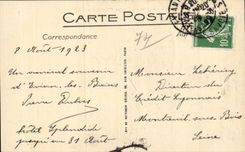 CARTE POSTALE
Correspondance
74
8 Août 1923
Un amical souvenir
d'Evian-les-Bains
Pierre Dubois
Hôtel Splendide
jusqu'au 31 Août
10
Monsieur
Directeur du
Crédit Lyonnais
Montreuil sous Bois
Seine